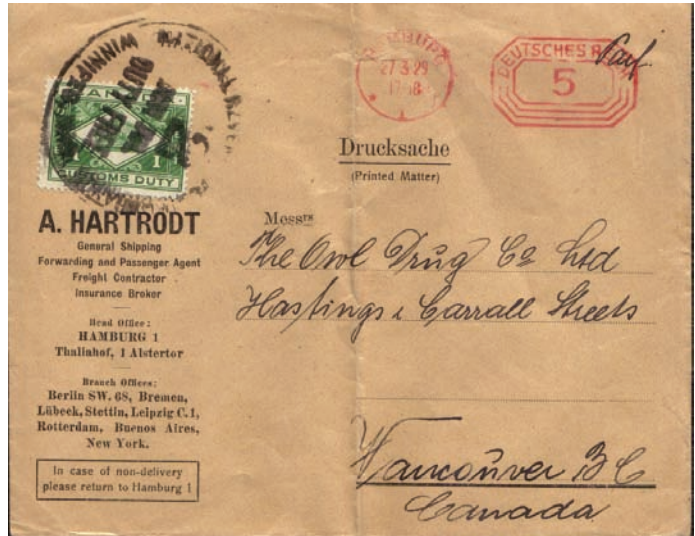 WINNIPEG NATIONAL REVENUE
DUTY FREE
CANADA
1 1
CUSTOMS DUTY
HAMBURG
27.3.29
17-18
1
DEUTSCHES REICH
5
Drucksache
(Printed Matter)
A. HARTRODT
General Shipping
Forwarding and Passenger Agent
Freight Contractor
Insurance Broker
Head Office:
HAMBURG 1
Thaliahof, 1 Alstertor
Branch Offices:
Berlin SW. 68, Bremen,
Lübeck, Stettin, Leipzig C. 1,
Rotterdam, Buenos Aires,
New York.
In case of non-delivery
please return to Hamburg 1
Messrs
The Owl Drug Co Ltd
Hastings & Carrall Streets
Vancoŭver B C
Canada